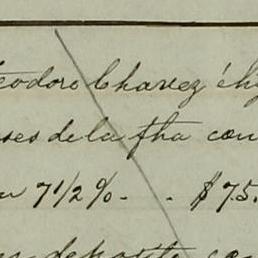 Teodoro Chavez é hij
ses de la fha con
7 1/2 % - - $75.
deposito con